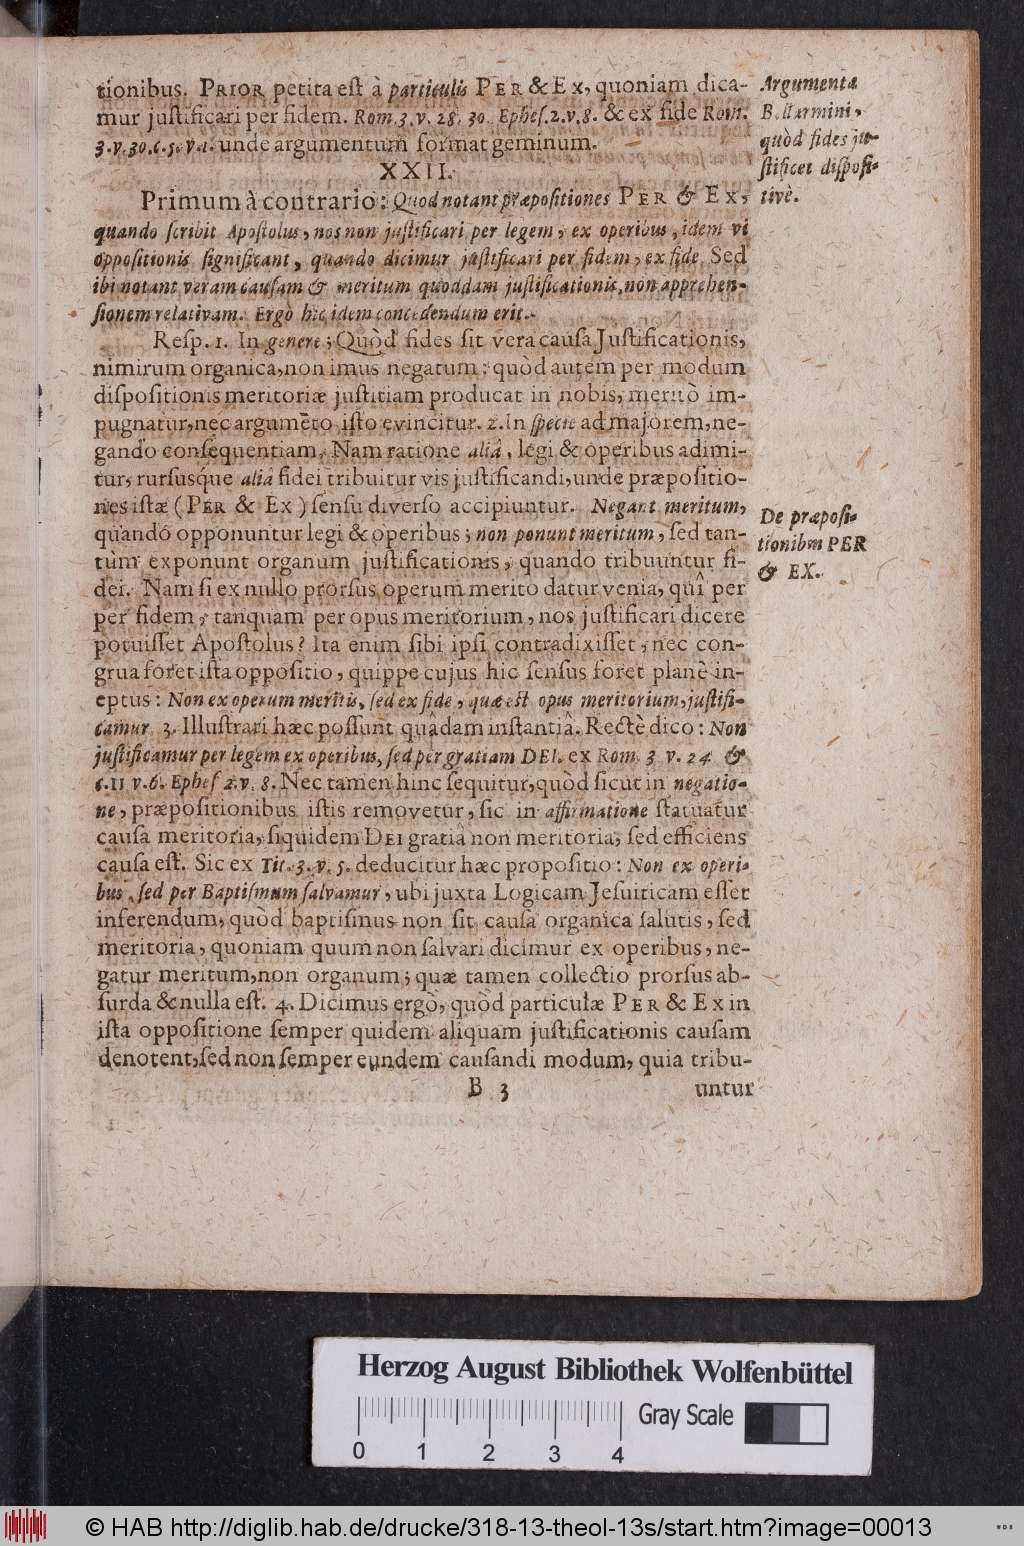 tionibus. PRIOR petita eſt à particulis PER & EX, quoniam dica-
mur juſtificari per fidem. Rom. 3. v. 28. 30. Epheſ. 2. v. 8. & ex fide Rom.
3. v. 30. c. 5. v. 1. unde argumentum format geminum.
Argumenta
Bellarmini,
quòd fides ju-
ſtificet diſpoſi-
tivè.
XXII.
Primum à contrario: Quod notant præpoſitiones PER & EX,
quando ſcribit Apoſtolus, nos non juſtificari per legem, ex operibus, idem vi
oppoſitionis ſignificant, quando dicimur juſtificari per fidem, ex fide. Sed
ibi notant veram cauſam & meritum quoddam juſtificationis, non apprehen-
ſionem relativam. Ergò hic idem concedendum erit.
Reſp. 1. In genere; Quòd fides ſit vera cauſa Juſtificationis,
nimirum organica, non imus negatum: quòd autem per modum
diſpoſitionis meritoriæ juſtitiam producat in nobis, meritò im-
pugnatur, nec argumēto iſto evincitur. 2. In ſpecie ad majorem, ne-
gando conſequentiam, Nam ratione aliâ, legi & operibus adimi-
tur, rurſusque aliâ fidei tribuitur vis juſtificandi, unde præpoſitio-
nes iſtæ (PER & EX) ſenſu diverſo accipiuntur. Negant meritum,
quandó opponuntur legi & operibus; non ponunt meritum, ſed tan-
tùm exponunt organum juſtificationis, quando tribuuntur fi-
dei. Nam ſi ex nullo prorſus operum merito datur venia, quî per
per fidem, tanquam per opus meritorium, nos juſtificari dicere
potuiſſet Apoſtolus? Ita enim ſibi ipſi contradixiſſet, nec con-
grua foret iſta oppoſitio, quippe cujus hic ſenſus foret planè in-
eptus: Non ex operum meritis, ſed ex fide, quæ est opus meritorium, juſtifi-
camur. 3. Illuſtrari hæc poſſunt quâdam inſtantiâ. Rectè dico: Non
juſtificamur per legem ex operibus, ſed per gratiam DEI. ex Rom. 3 v. 24 &
c. 11 v. 6. Epheſ 2. v. 8. Nec tamen hinc ſequitur, quòd ſicut in negatio-
ne, præpoſitionibus iſtis removetur, ſic in affirmatione ſtatuatur
cauſa meritoria, ſiquidem DEI gratia non meritoria, ſed efficiens
cauſa eſt. Sic ex Tit. 3. v. 5. deducitur hæc propoſitio: Non ex operi-
bus, ſed per Baptiſmum ſalvamur, ubi juxta Logicam Jeſuiticam eſſet
inferendum, quòd baptiſmus non ſit cauſa organica ſalutis, ſed
meritoria, quoniam quum non ſalvari dicimur ex operibus, ne-
gatur meritum, non organum; quæ tamen collectio prorſus ab-
ſurda & nulla eſt. 4. Dicimus ergò, quòd particulæ PER & EX in
iſta oppoſitione ſemper quidem aliquam juſtificationis cauſam
denotent, ſed non ſemper eundem cauſandi modum, quia tribu-
De præpoſi-
tionibus PER
& EX.
B 3
untur
Herzog August Bibliothek Wolfenbüttel
0 1 2 3 4
Gray Scale
© HAB http://diglib.hab.de/drucke/318-13-theol-13s/start.htm?image=00013